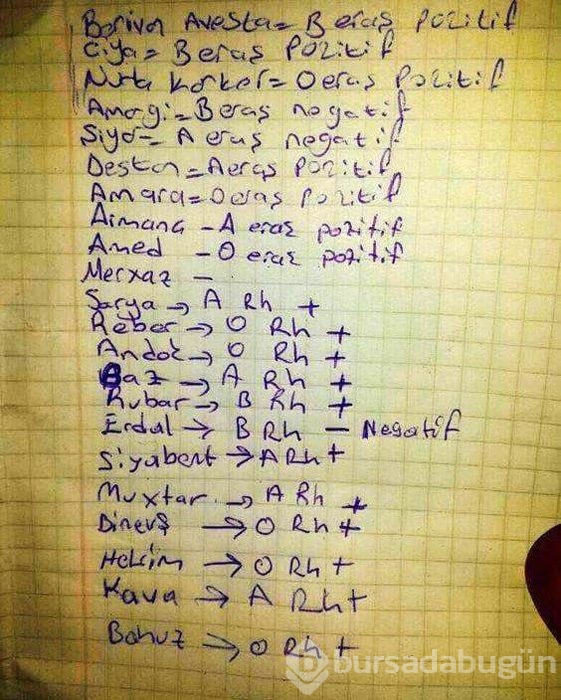 Berivan Avesta = B eras pozitif
Ciya = B eras pozitif
Nuda Korkor = O eras pozitif
Amargi = B eras negatif
Siyar = A eras negatif
Destan = A eras pozitif
Amara = O eras pozitif
Aimana - A eras pozitif
Amed - O eras pozitif
Merxaz -
Sarya → A Rh +
Reber → O Rh +
Andok → O Rh +
Baz → A Rh +
Rubar → B Rh +
Erdal → B Rh - Negatif
Siyabent → A Rh +
Muxtar → A Rh +
Dinerş → O Rh +
Hekim → O Rh +
Kava → A Rh +
Bahuz → O Rh +
bursadabugün